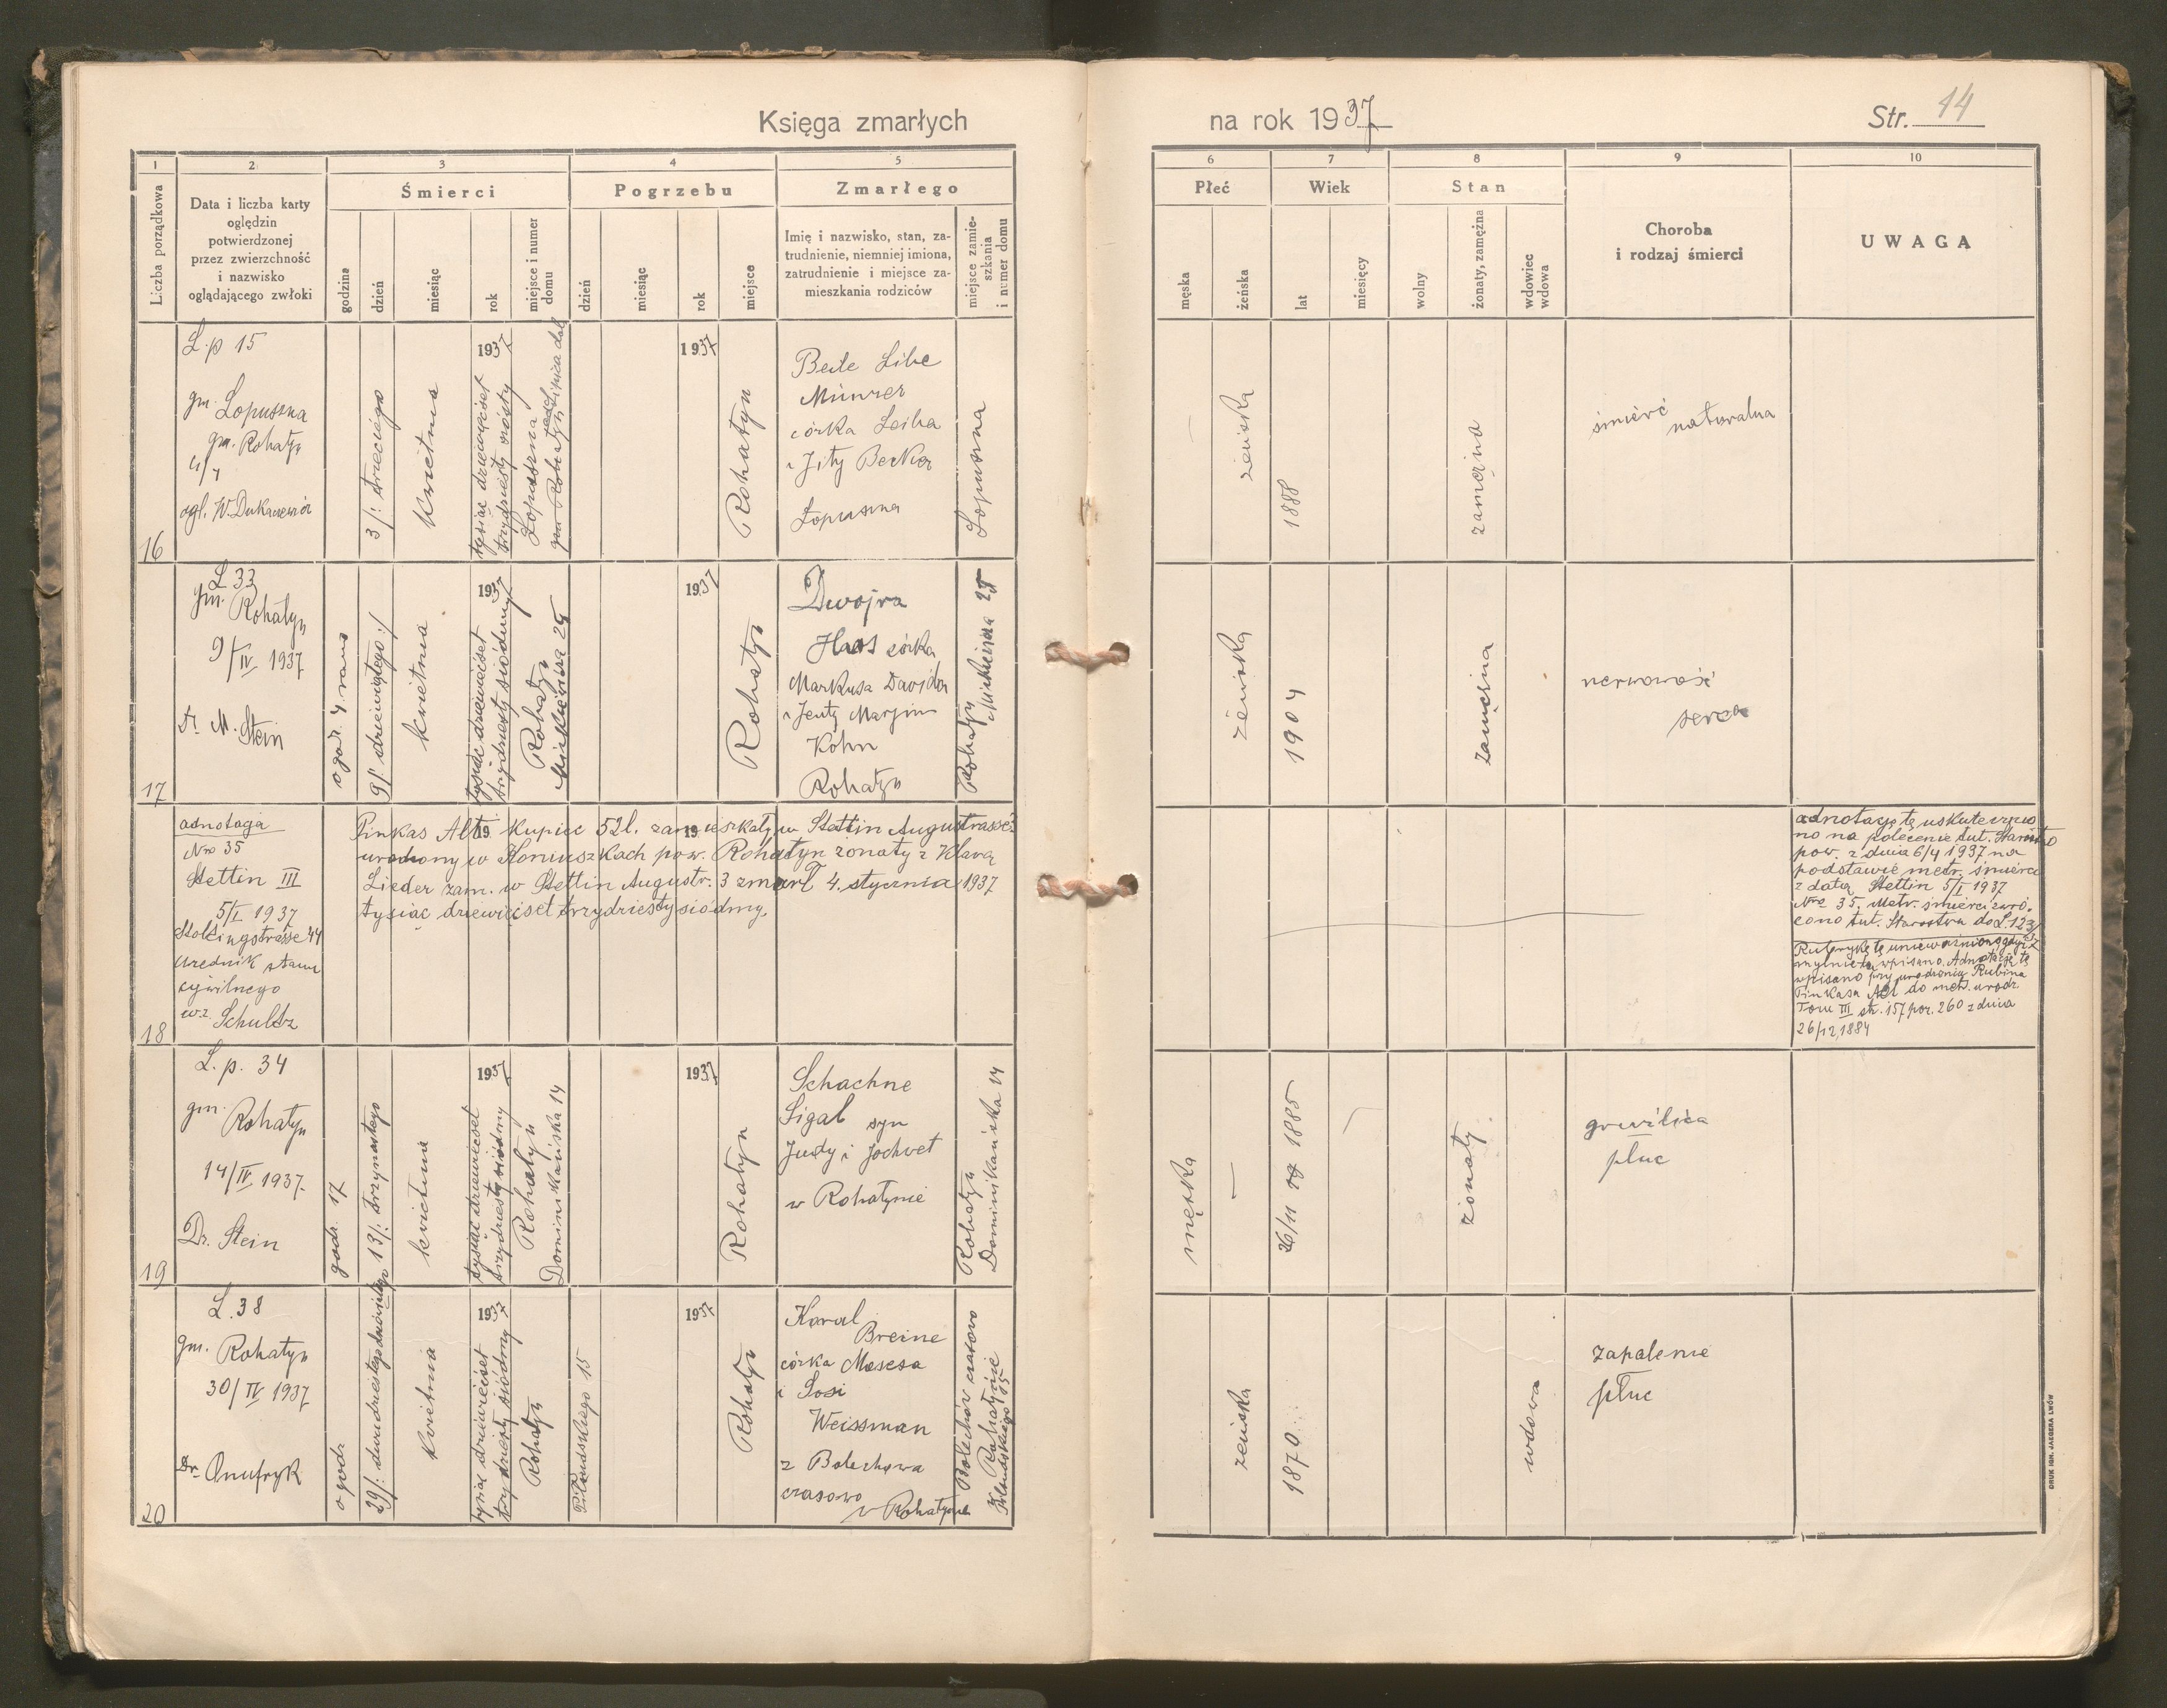 Księga zmarłych
na rok 1937
Str. 14
1
2
3
4
5
6
7
8
9
10
Liczba porządkowa
Data i liczba karty
oględzin
potwierdzonej
przez zwierzchność
i nazwisko
oglądającego zwłoki
Śmierci
godzina
dzień
miesiąc
rok
miejsce i numer
domu
Pogrzebu
dzień
miesiąc
rok
miejsce
Zmarłego
Imię i nazwisko, stan, za-
trudnienie, niemniej imiona,
zatrudnienie i miejsce za-
mieszkania rodziców
miejsce zamie-
szkania
i numer domu
Płeć
męska
żeńska
Wiek
lat
miesięcy
Stan
wolny
żonaty, zamężna
wdowiec
wdowa
Choroba
i rodzaj śmierci
UWAGA
16
L.p 15
gm. Łopuszna
gm. Rohatyn
4/4
ogl.
3/: trzeciego
kwietnia
1937
tysiąc dziewięćset
trzydziesty
Łopuszna
gm. Rohatyn
1937
Rohatyn
Beile Libe
Münzer
córka Leiba
i Jity Becker
Łopuszna
Łopuszna
żeńska
1888
zamężna
śmierć
naturalna
17
L 33
gm. Rohatyn
9/IV 1937
Dr M. Stein
o god. 4 rano
9/: dziewiątego :/
kwietnia
1937
tysiąc dziewięćset
trzydziesty siódmy
Rohatyn
Mickiewicza 25
1937
Rohatyn
Dwojra
Haas córka
Markusa Dawida
i Jenty Marjim
Kohn
Rohatyn
Rohatyn
Mickiewicza 25
żeńska
1904
zamężna
nerwowość
serca
18
adnotacja
Nro 35
Stettin III
5/I 1937
Stoltingstrasse 44
urzędnik stanu
cywilnego
wz. Schultz
19
19
Pinkas Alt kupiec 52 l. zamieszkały w Stettin Augustrasse 3
urodzony w Koniuszkach pow. Rohatyn żonaty z Klarą
Lieder zam. w Stettin Augustr. 3 zmarł 4. stycznia 1937
tysiąc dziewięćset trzydziesty siódmy.
adnotację tę uskutecznio
no na polecenie tut. Starostwa
pow. z dnia 6/4 1937 na
podstawie metr. śmierci
z datą Stettin 5/I 1937
Nro 35. Metr. śmierci zwró-
cono tut. Starostwu do L. 123/
Rubrykę tę unieważniono, gdyż
mylnie tu wpisano. Adnotację tę
wpisano przy urodzeniu Rubina
Pinkasa Alt do metr. urodz.
Tom III str. 157 poz. 260 z dnia
26/12 1884
19
L. p. 34
gm. Rohatyn
14/IV 1937.
Dr. Stein
godz. 17
13/: trzynastego
kwietnia
1937
tysiąc dziewięćset
trzydziesty siódmy
Rohatyn
Dominikańska 14
1937
Rohatyn
Schachne
Sigal syn
Judy i Jochwet
w Rohatynie
Rohatyn
Dominikańska 14
męska
26/11 1885
żonaty
gruźlica
płuc
20
L. 38
gm. Rohatyn
30/IV 1937
Dr. Onufryk
o godz
29/: dwudziestego dziewiątego
kwietnia
1937
tysiąc dziewięćset
trzydziesty siódmy
Rohatyn
Piłsudskiego 15
1937
Rohatyn
Karal
Breine
córka Mosesa
i Sosi
Weissman
z Bolechowa
czasowo
w Rohatynie
Bolechów czasowo
Rohatynie
Piłsudskiego 15
żeńska
1870
wdowa
zapalenie
płuc
DRUK IGN. JAEGERA LWÓW